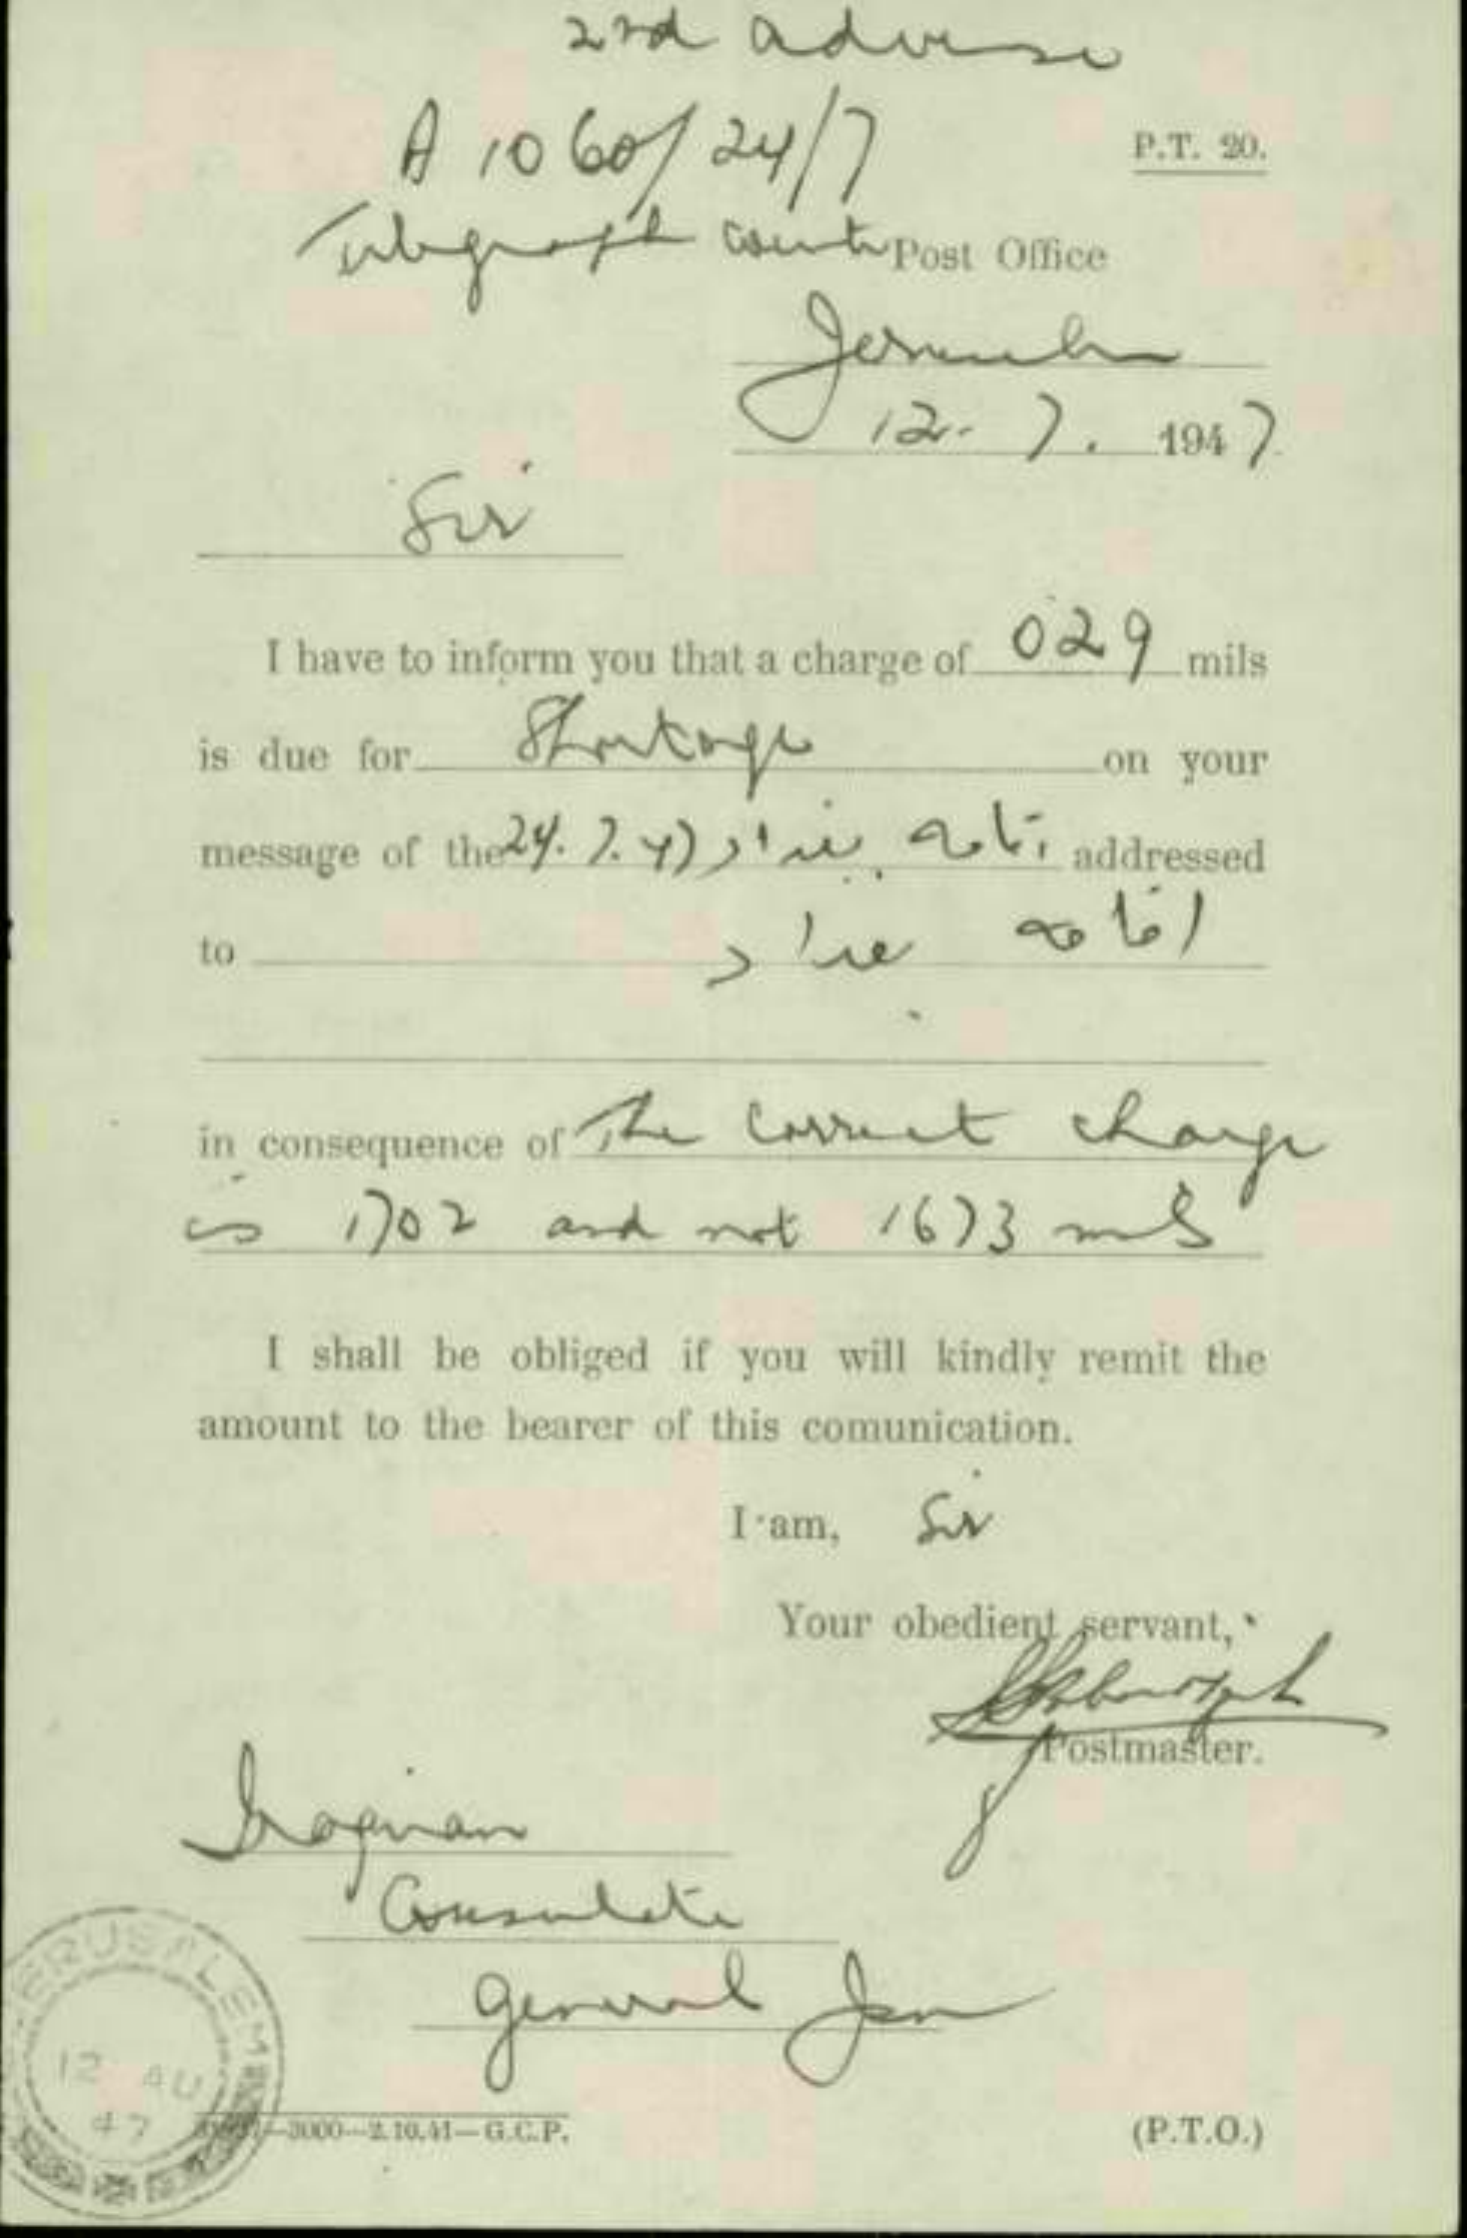 2nd advise
A 1060/24/7
P.T. 20.
Telegraph Counter Post Office
Jerusalem
12. 7. 1947
Sir
I have to inform you that a charge of 029 mils
is due for Shortage on your
message of the 24.7.47 اقامه بغداد addressed
to اقامه بغداد
in consequence of The correct charge
is 1702 and not 1673 mils
I shall be obliged if you will kindly remit the
amount to the bearer of this comunication.
I am, Sir
Your obedient servant,
Postmaster.
Iraqian
Consulate
General Jem
JERUSALEM
12 AU
47
—3000—2.10.41—G.C.P.
(P.T.O.)